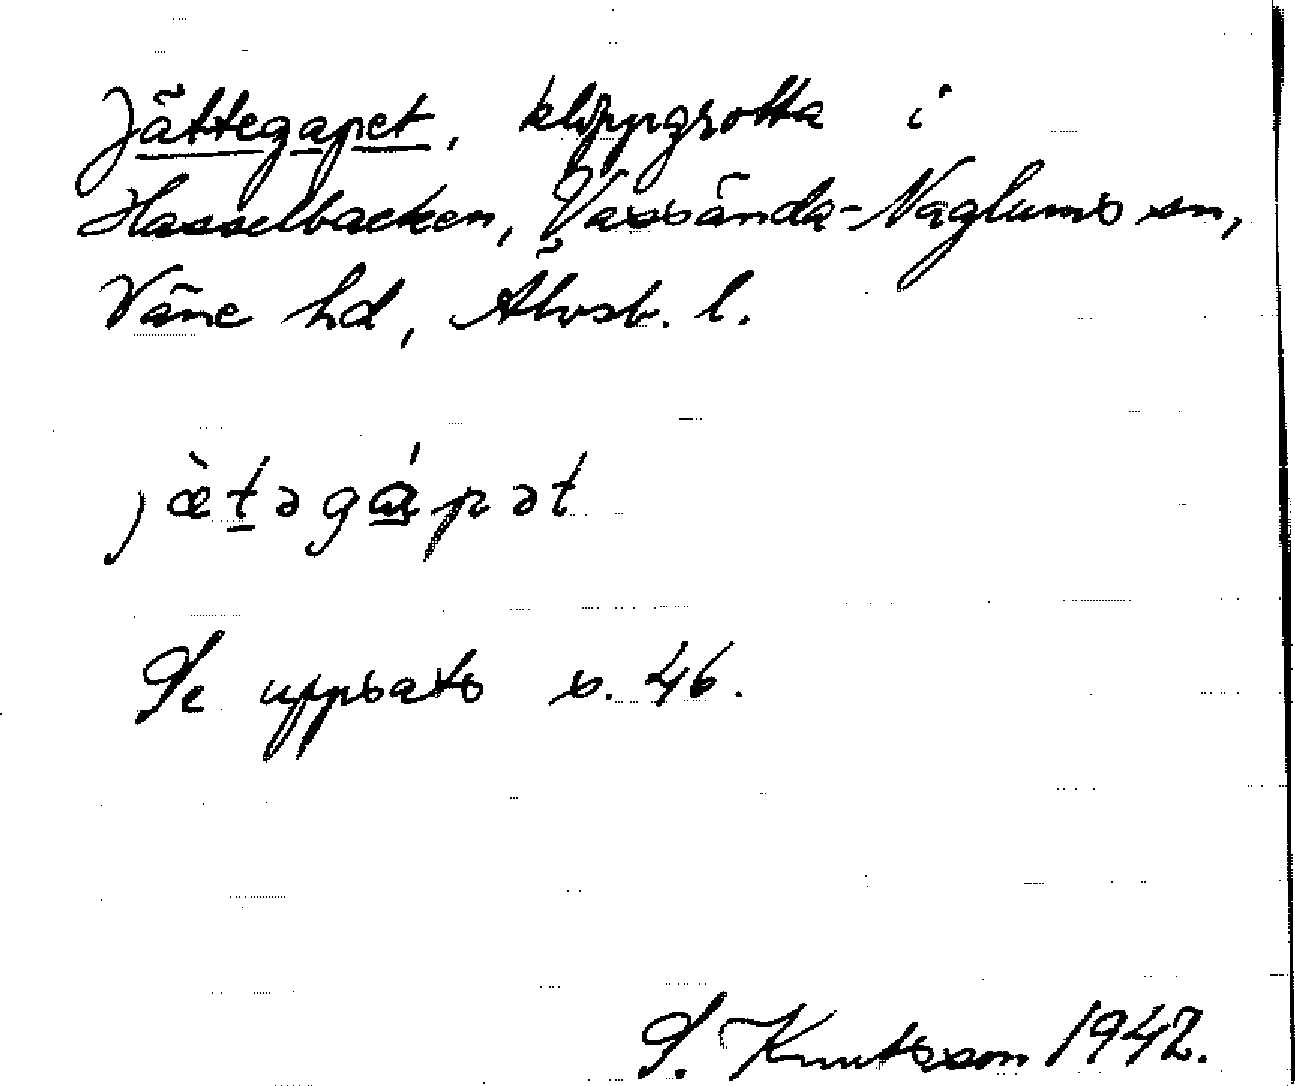 Jättegapet, klippgrotta i
Hasselbacken, Vassända-Naglums sn,
Väne hd, Älvsb. l.
jæ̀təgɑ́pət
Se uppsats s. 46.
S. Knutsson 1942.